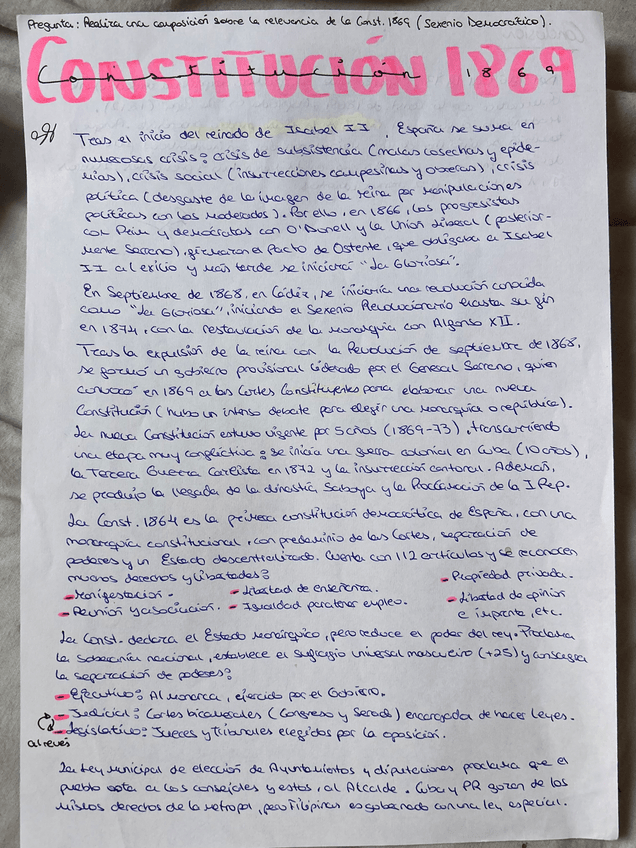 Pregunta: Realiza una composición sobre la relevancia de la Const. 1869 (Sexenio Democrático).
CONSTITUCIÓN 1869
Constitución 1869
Tras el inicio del reinado de Isabel II, España se suma en
numerosas crisis: crisis de subsistencia (malas cosechas y epide-
mias), crisis social (insurrecciones campesinas y obreras), crisis
política (desgaste de la imagen de la reina por manipulaciones
políticas con los moderados). Por ello, en 1866, los progresistas
con Prim y demócratas con O'Donell y la Unión Liberal (posterior-
mente Serrano), firmaron el Pacto de Ostente, que obligaba a Isabel
II al exilio y más tarde se iniciaría "La Gloriosa".
En Septiembre de 1868, en Cádiz, se iniciaría una revolución conocida
como "La Gloriosa", iniciando el Sexenio Revolucionario hasta su fin
en 1874, con la restauración de la monarquía con Alfonso XII.
Tras la expulsión de la reina con la Revolución de septiembre de 1868,
se formó un gobierno provisional liderado por el General Serrano, quien
convocó en 1869 a las Cortes Constituyentes para elaborar una nueva
Constitución (hubo un intenso debate para elegir una monarquía o república).
La nueva Constitución estuvo vigente por 5 años (1869-73), transcurriendo
una etapa muy conflictiva: se inicia una guerra colonial en Cuba (10 años),
la Tercera Guerra Carlista en 1872 y la insurrección cantonal. Además,
se produjo la llegada de la dinastía Saboya y la Proclamación de la I Rep.
La Const. 1864 es la primera constitución democrática de España, con una
monarquía constitucional, con predominio de las Cortes, separación de
poderes y un Estado descentralizado. Cuenta con 112 artículos y se reconocen
muchos derechos y libertades:
- Manifestación. - Libertad de enseñanza. - Propiedad privada.
- Reunión y asociación. - Igualdad para tener empleo. - Libertad de opinión
e imprenta, etc.
La Const. declara el Estado Monárquico, pero reduce el poder del rey. Proclama
la soberanía nacional, establece el sufragio universal masculino (+25) y consagra
la separación de poderes:
- Ejecutivo: Al monarca, ejercido por el Gobierno.
- Judicial: Cortes bicamerales (Congreso y Senado) encargada de hacer leyes.
- Legislativo: Jueces y Tribunales elegidos por la oposición.
al revés
La Ley Municipal de elección de Ayuntamientos y diputaciones proclama que el
pueblo vota a los concejales y estos, al Alcalde. Cuba y PR gozan de los
mismos derechos de la metrópol, pero Filipinas es gobernado con una ley especial.